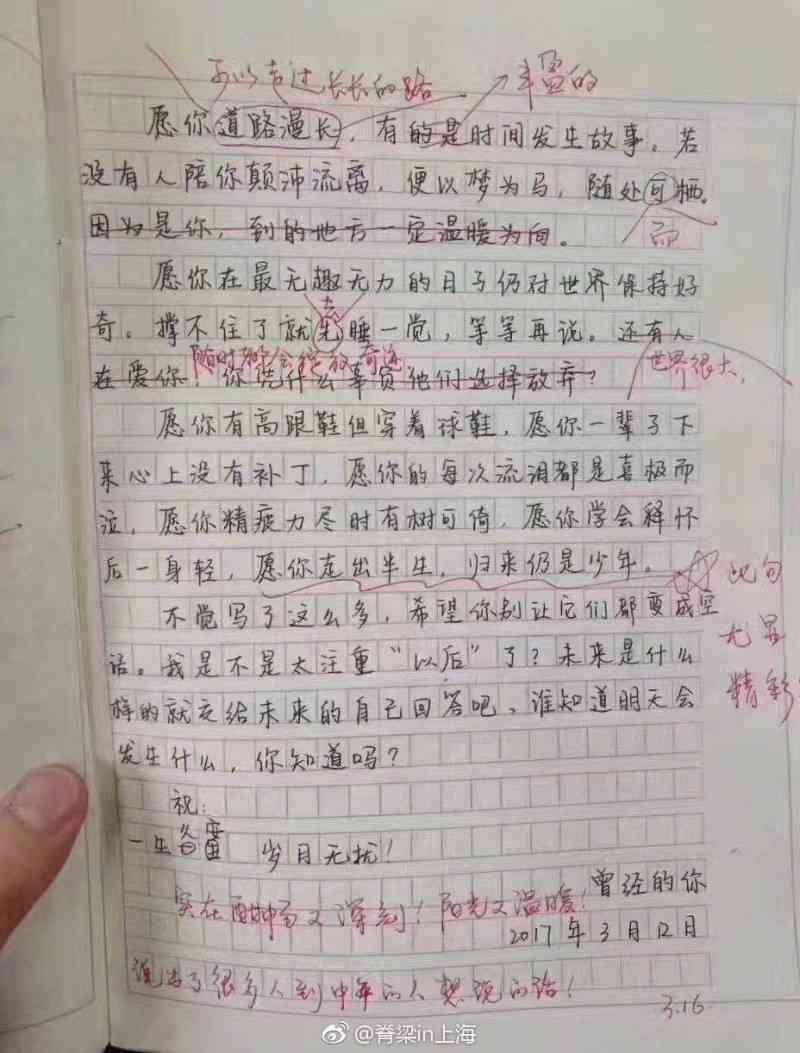 可以走过长长的路 丰盈的
愿你道路漫长，有的是时间发生故事。若
没有人陪你颠沛流离，便以梦为马，随处可栖。
因为是你，到的地方一定温暖为向。 而
愿你在最无趣无力的日子仍对世界保持好
去
奇。撑不住了就先睡一觉，等等再说。还有人
随时都会绽放奇迹 世界很大，
在爱你！你凭什么辜负他们选择放弃？
愿你有高跟鞋但穿着球鞋，愿你一辈子下
来心上没有补丁，愿你的每次流泪都是喜极而
泣，愿你精疲力尽时有树可倚，愿你学会释怀
后一身轻，愿你走出半生，归来仍是少年。 此句
不觉写了这么多，希望你别让它们都变成空 尤显
话。我是不是太注重“以后”了？未来是什么 精彩
样的就交给未来的自己回答吧，谁知道明天会
发生什么，你知道吗？
祝：
一生 岁月无扰！
曾经的你
实在 又深刻！阳光又温暖！
2017年3月12日
说出了很多人到中年的人想说的话！
3.16
@脊梁in上海